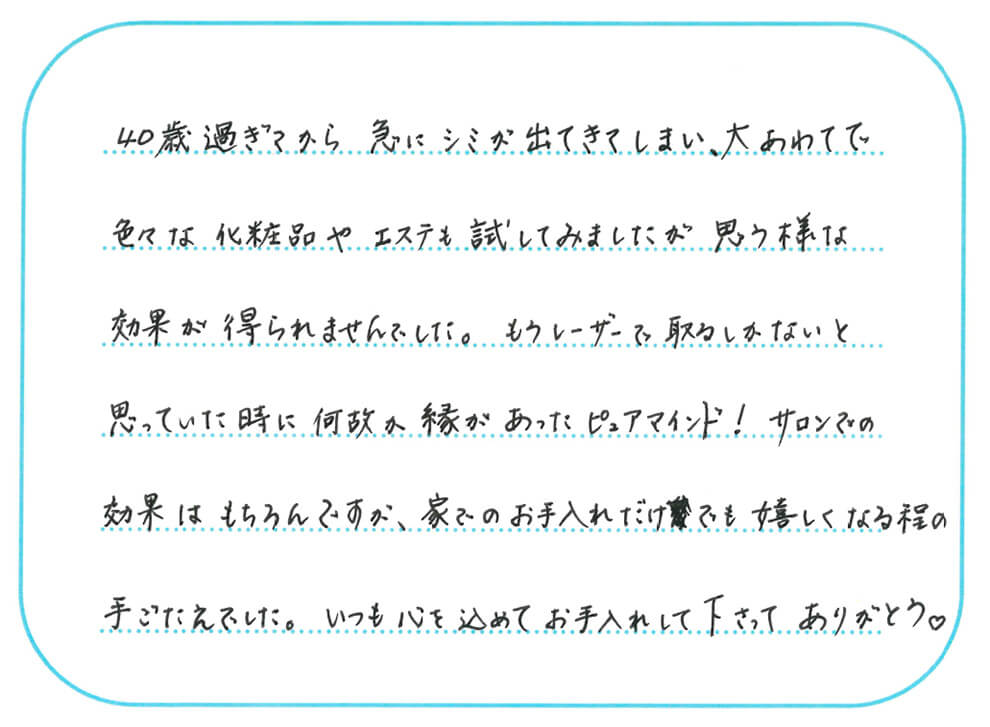 40歳過ぎてから 急にシミが出てきてしまい、大あわてで
色々な 化粧品や エステも 試してみましたが 思う様な
効果が 得られませんでした。 もうレーザーで 取るしかないと
思っていた時に 何故か 縁が あった ピュアマインド! サロンでの
効果は もちろんですが、家でのお手入れだけでも 嬉しくなる程の
手ごたえでした。 いつも 心を 込めて お手入れして 下さって ありがとう♡